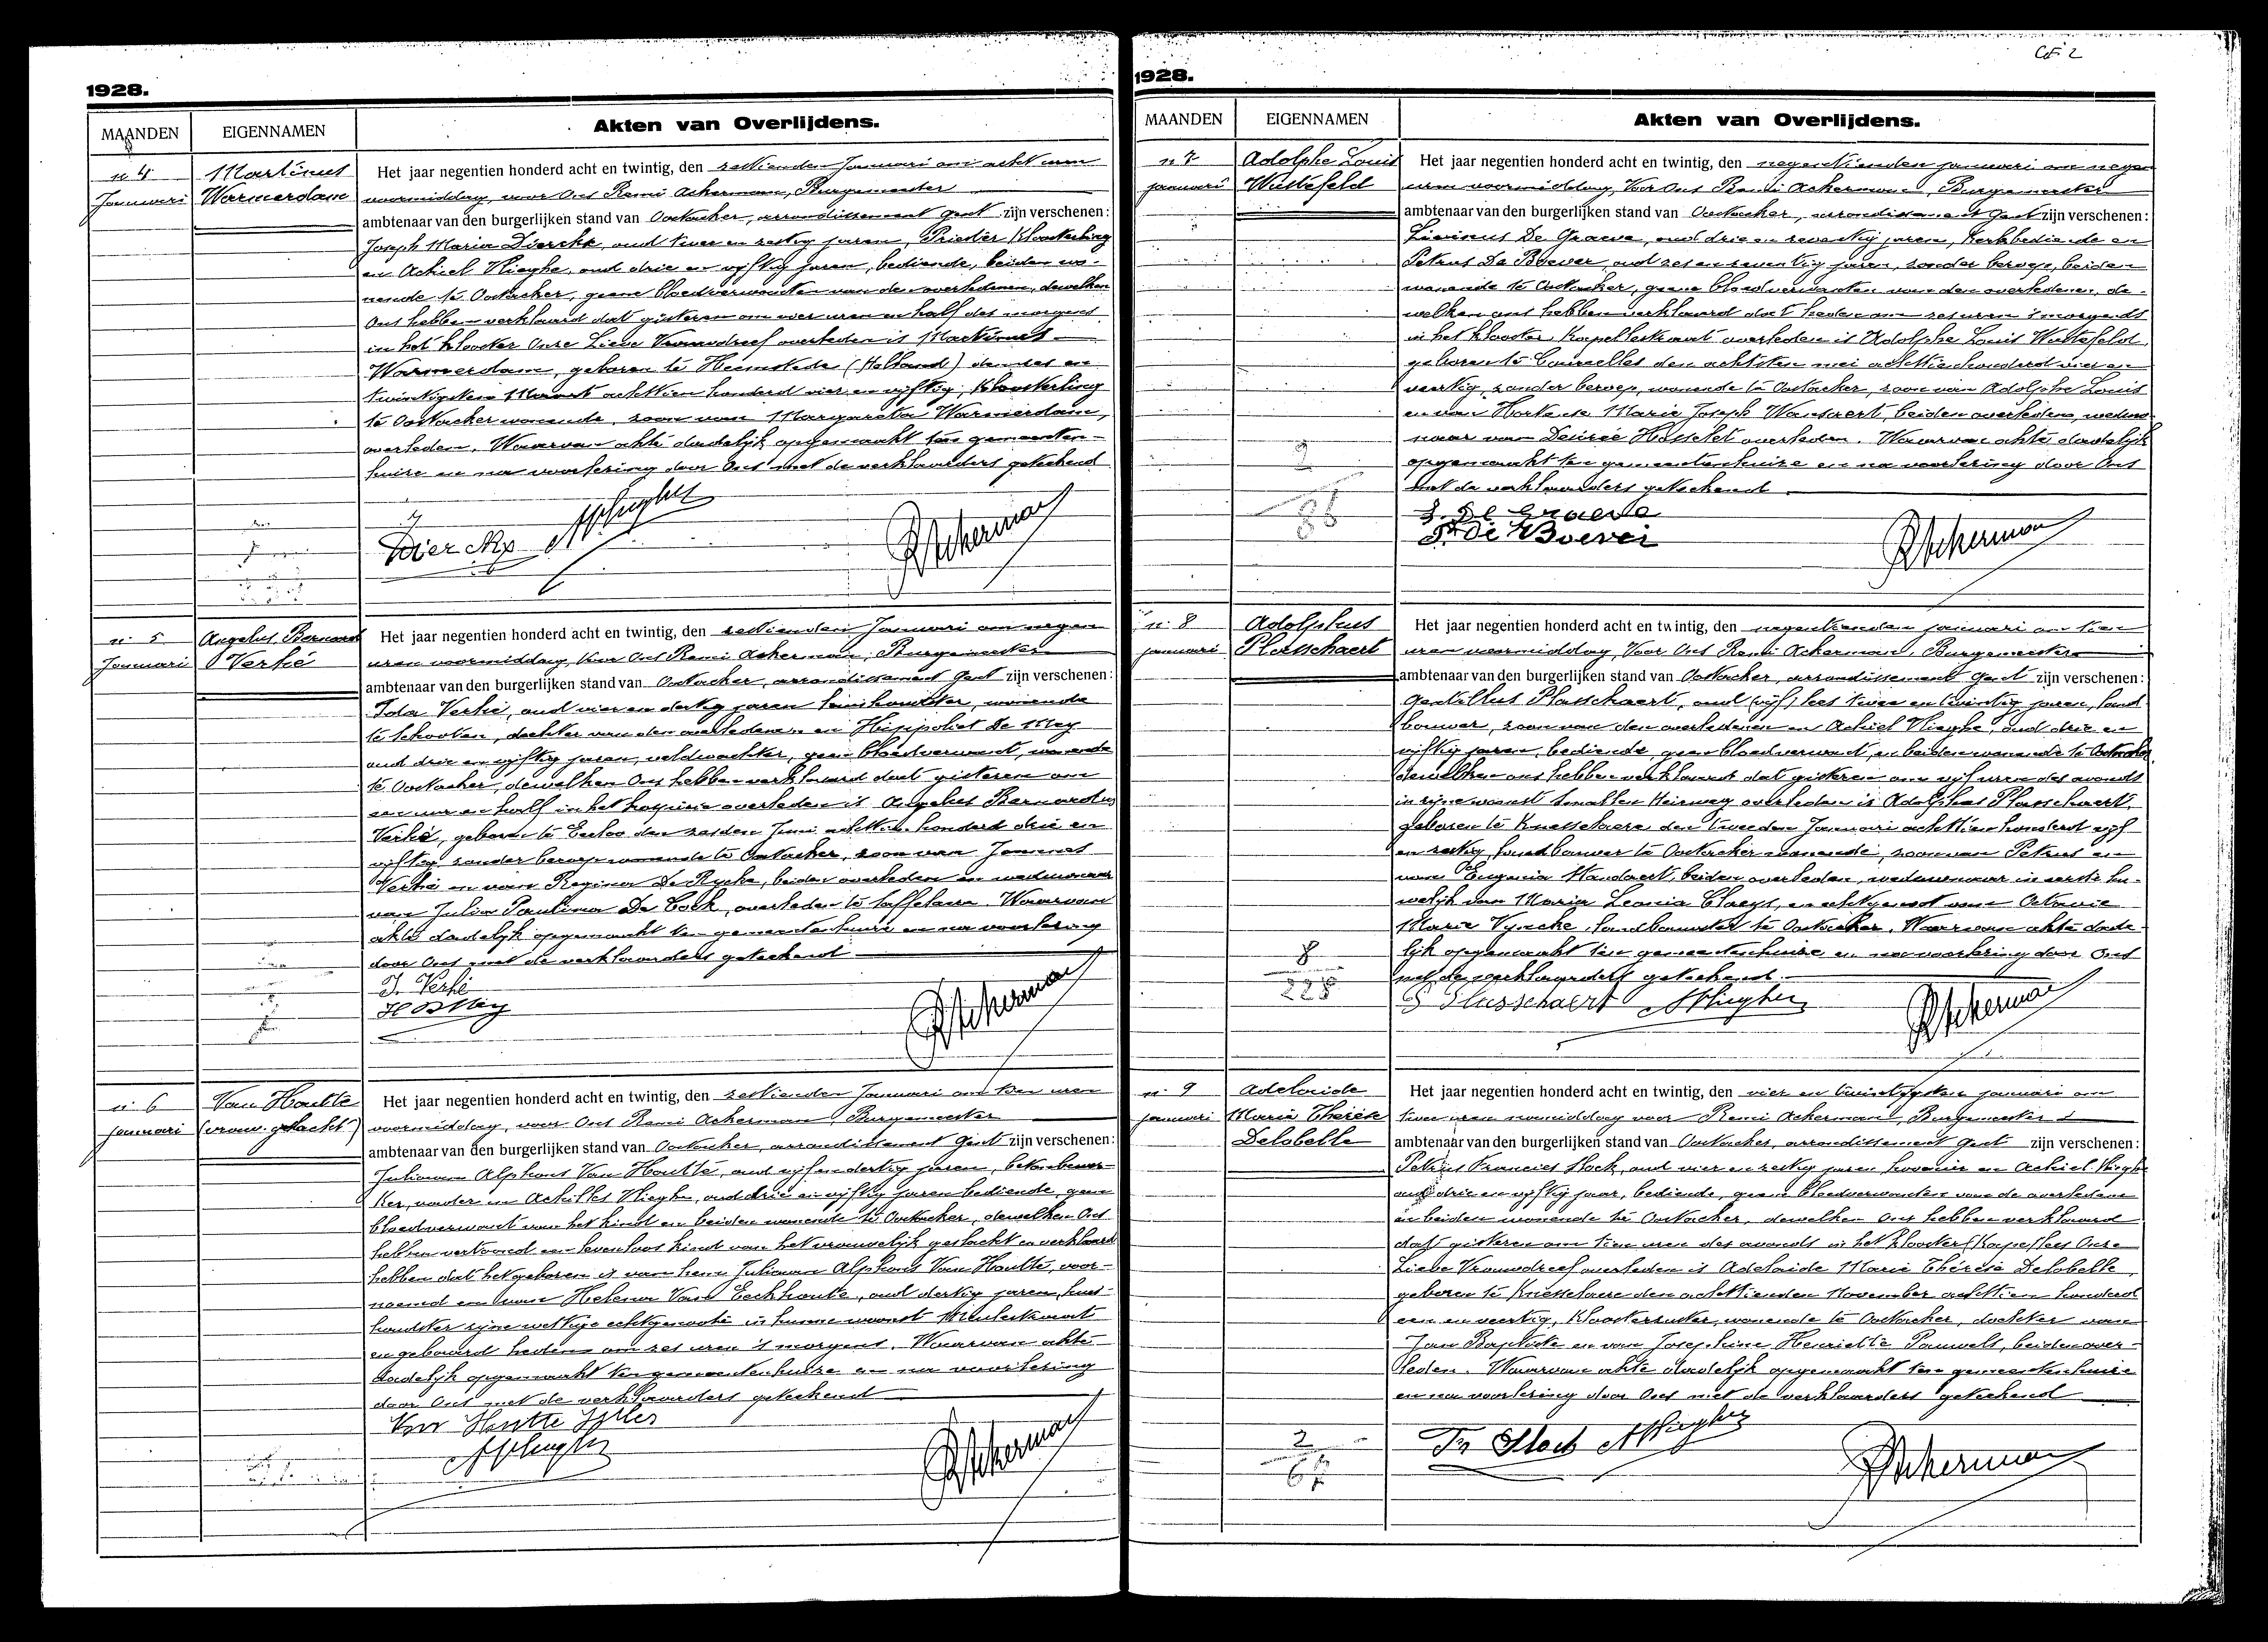 1928.
MAANDEN
EIGENNAMEN
Akten van Overlijdens.
n. 4
Januari
Martinus
Warmerdam
Het jaar negentien honderd acht en twintig, den zestienden Januari om acht uren
voormiddag, voor Ons Remi Ackerman, Burgemeester
ambtenaar van den burgerlijken stand van Oostacker, arrondissement Gent zijn verschenen:
Joseph Maria Dierckx, oud twee en zestig jaren, Priester Kloosterling
en Achiel Hieghe, oud drie en vijftig jaren, bediende, beiden wo-
nende te Oostacker, geene bloedverwanten van den overledenen, dewelken
Ons hebben verklaard dat gisteren om vier uren en half des morgens
in het klooster Onze Lieve Vrouwdreef overleden is Martinus
Warmerdam, geboren te Heemstede (Holland) den zes en
twintigsten Maart achttien honderd vier en vijftig, Kloosterling
te Oostacker wonende, zoon van Margareta Warmerdam,
overleden. Waarvan akte dadelijk opgemaakt ten gemeenten-
huize en na voorlezing door Ons met de verklaarders geteekend
Dierckx AHieghe
RAckerman
n. 5
Januari
Angelus Bernard
Verhé
Het jaar negentien honderd acht en twintig, den zestienden Januari om negen
uren voormiddag, voor Ons Remi Ackerman, Burgemeester
ambtenaar van den burgerlijken stand van Oostacker, arrondissement Gent zijn verschenen:
Ida Verhé, oud vier en dertig jaren huishoudster, wonende
te Schooten, dochter van den overledenen en Hippoliet De Mey
oud drie en vijftig jaren, veldwachter, geen bloedverwant, wonende
te Oostacker, dewelken Ons hebben verklaard dat gisteren om
een uur en half in het hospice overleden is Angelus Bernardus
Verhé, geboren te Eecloo den zesden Juni achttien honderd drie en
vijftig zonder beroep wonende te Oostacker, zoon van Joannes
Verhé en van Regina De Rycke, beiden overleden en weduwnaar
van Julia Paulina De Cock, overleden te Caffelaere. Waarvan
akte dadelijk opgemaakt ten gemeentenhuize en na voorlezing
door Ons met de verklaarders geteekend
I. Verhé
H De Mey
RAckerman
n. 6
januari
Van Houtte
(vrouw. geslacht)
Het jaar negentien honderd acht en twintig, den zestienden Januari om tien uren
voormiddag, voor Ons Remi Ackerman, Burgemeester
ambtenaar van den burgerlijken stand van Oostacker, arrondissement Gent zijn verschenen:
Juliaan Alphons Van Houtte, oud vijf en dertig jaren, betonbewer-
ker, vader en Achilles Hieghe, oud drie en vijftig jaren bediende, geen
bloedverwant van het kind en beiden wonende te Oostacker, dewelken Ons
hebben vertoond een levenloos kind van het vrouwelijk geslacht en verklaard
hebben dat het geboren is van hem Juliaan Alphons Van Houtte, voor-
noemd en van Helena Van Eeckhoute, oud dertig jaren, huis-
houdster zijne wettige echtgenoote in hunne woonst
en gebaard heden om zes uren 's morgens. Waarvan akte
dadelijk opgemaakt ten gemeentenhuize en na voorlezing
door Ons met de verklaarders geteekend
Van Houtte Jules
AHieghe
RAckerman
1928.
MAANDEN
EIGENNAMEN
Akten van Overlijdens.
n. 7
januari
Adolphe Louis
Wustefeld
Het jaar negentien honderd acht en twintig, den negentienden januari om negen
uren voormiddag, Voor Ons Remi Ackerman, Burgemeester
ambtenaar van den burgerlijken stand van Oostacker, arrondissement Gent zijn verschenen:
Livinus De Graeve, oud drie en zeventig jaren, kerkbediende en
Petrus De Boever, oud zes en zeventig jaren, zonder beroep, beiden
wonende te Oostacker, geene bloedverwanten van den overledenen, de-
welken ons hebben verklaard dat heden om zes uren 's morgends
in het klooster, Kapellestraat overleden is Adolphe Louis Wustefeld,
geboren te Courcelles den achtsten mei achttienhonderd vier en
veertig, zonder beroep, wonende te Oostacker, zoon van Adolphe Louis
en van Hortense Marie Joseph Wansaert, beiden overleden, weduw-
naar van Desirée Hasselet overleden. Waarvan akte dadelijk
opgemaakt ten gemeentenhuize en na voorlezing door Ons
met de verklaarders geteekend
De Graeve
De Boever
RAckerman
n. 8
januari
Adolphus
Plasschaert
Het jaar negentien honderd acht en twintig, den negentienden januari om tien
uren voormiddag, Voor Ons Remi Ackerman, Burgemeester
ambtenaar van den burgerlijken stand van Oostacker, arrondissement Gent zijn verschenen:
Gentillus Plasschaert, oud (vijf) lees twee en twintig jaren, land-
bouwer, zoon van den overledenen en Achiel Hieghe, oud drie en
vijftig jaren, bediende, geen bloedverwant, en beiden wonende te Oostacker
dewelken ons hebben verklaard dat gisteren om vijf uren des avonds
in zijne woonst Smallen Heirweg overleden is Adolphus Plasschaert,
geboren te Knesselaere den tweeden Januari achttien honderd vijf
en zestig, landbouwer te Oostacker wonende, zoon van Petrus en
van Eugenia Haudaert, beiden overleden, weduwnaar in eerste hu-
welijk van Maria Leonia Claeys, en echtgenoot van Octavie
Marie Vyncke, landbouwster te Oostacker. Waarvan akte dade-
lijk opgemaakt ten gemeentenhuize en na voorlezing door Ons
met de verklaarders geteekend
8
G Plasschaert AHieghe
RAckerman
n. 9
januari
Adelaide
Maria Thérèse
Delobelle
Het jaar negentien honderd acht en twintig, den vier en twintigsten januari om
twee uren namiddag voor Remi Ackerman, Burgemeester
ambtenaar van den burgerlijken stand van Oostacker, arrondissement Gent zijn verschenen:
Petrus Francies Stock, oud vier en zestig jaren hovenier en Achiel Hieghe
oud drie en vijftig jaar, bediende, geene bloedverwanten van de overledene
en beiden wonende te Oostacker, dewelken Ons hebben verklaard
dat gisteren om tien uren des avonds in het klooster Onze
Lieve Vrouwdreef overleden is Adelaide Marie Thérèse Delobelle
geboren te Knesselaere den achttienden November achttien honderd
een en veertig, Kloosterzuster, wonende te Oostacker, dochter van
Jan Baptiste en van Josephine Henriette Pauwels, beiden over-
leden. Waarvan akte dadelijk opgemaakt ten gemeentenhuize
en na voorlezing door Ons met de verklaarders geteekend
2
Fr Stock AHieghe
RAckerman